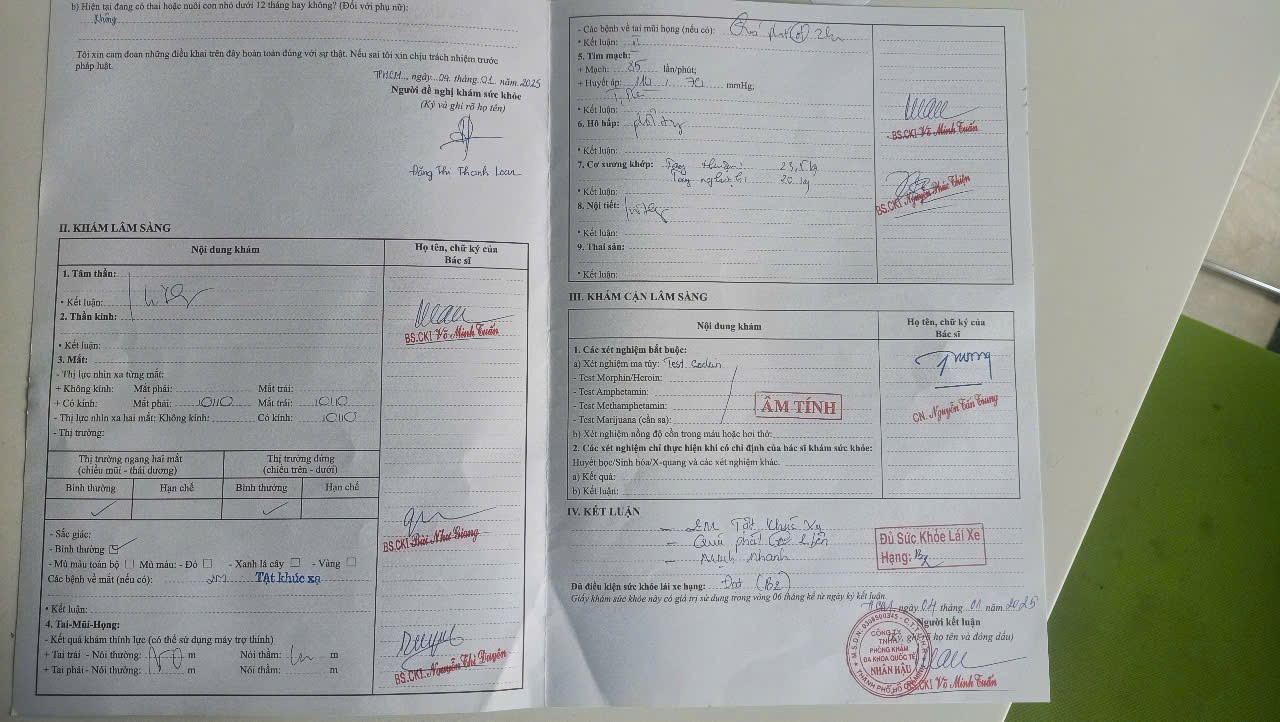 b) Hiện tại đang có thai hoặc nuôi con nhỏ dưới 12 tháng hay không? (Đối với phụ nữ):
Không
Tôi xin cam đoan những điều khai trên đây hoàn toàn đúng với sự thật. Nếu sai tôi xin chịu trách nhiệm trước
pháp luật.
TPHCM, ngày 04 tháng 01 năm 2025
Người đề nghị khám sức khỏe
(Ký và ghi rõ họ tên)
Đặng Thị Thanh Loan
II. KHÁM LÂM SÀNG
Nội dung khám
Họ tên, chữ ký của
Bác sĩ
1. Tâm thần:
• Kết luận:
2. Thần kinh:
BS.CKI Võ Minh Tuấn
• Kết luận:
3. Mắt:
- Thị lực nhìn xa từng mắt:
+ Không kính: Mắt phải: Mắt trái:
+ Có kính: Mắt phải: 10/10 Mắt trái: 10/10
- Thị lực nhìn xa hai mắt: Không kính: Có kính: 10/10
- Thị trường:
Thị trường ngang hai mắt
(chiều mũi - thái dương)
Thị trường đứng
(chiều trên - dưới)
Bình thường Hạn chế Bình thường Hạn chế
- Sắc giác:
- Bình thường
BS.CKI Bùi Như Giang
- Mù màu toàn bộ Mù màu: - Đỏ - Xanh lá cây - Vàng
Các bệnh về mắt (nếu có): 2M Tật khúc xạ
• Kết luận:
4. Tai-Mũi-Họng:
- Kết quả khám thính lực (có thể sử dụng máy trợ thính)
+ Tai trái - Nói thường: m Nói thầm: m
+ Tai phải - Nói thường: m Nói thầm: m
BS.CKI. Nguyễn Thị Duyên
- Các bệnh về tai mũi họng (nếu có): Quá phát
• Kết luận:
5. Tim mạch:
+ Mạch: 85 lần/phút;
+ Huyết áp: 110 / 70 mmHg;
• Kết luận:
6. Hô hấp:
BS.CKI Võ Minh Tuấn
• Kết luận:
7. Cơ xương khớp: Tay thuận: 23,5 kg
Tay nghịch: 20 kg
• Kết luận:
8. Nội tiết:
• Kết luận:
9. Thai sản:
• Kết luận:
III. KHÁM CẬN LÂM SÀNG
Nội dung khám
Họ tên, chữ ký của
Bác sĩ
1. Các xét nghiệm bắt buộc:
a) Xét nghiệm ma túy: Test Codein
- Test Morphin/Heroin:
- Test Amphetamin:
- Test Methamphetamin:
ÂM TÍNH
CN. Nguyễn Tấn Trung
- Test Marijuana (cần sa):
b) Xét nghiệm nồng độ cồn trong máu hoặc hơi thở:
2. Các xét nghiệm chỉ thực hiện khi có chỉ định của bác sĩ khám sức khỏe:
Huyết học/Sinh hóa/X-quang và các xét nghiệm khác.
a) Kết quả:
b) Kết luận:
IV. KẾT LUẬN
- 2M Tật khúc xạ
- Quá phát
- Mạch nhanh
Đủ Sức Khỏe Lái Xe
Hạng: B2
Đủ điều kiện sức khỏe lái xe hạng: Đạt (B2)
Giấy khám sức khỏe này có giá trị sử dụng trong vòng 06 tháng kể từ ngày ký kết luận.
HCM ngày 04 tháng 01 năm 2025
Người kết luận
ghi rõ họ tên và đóng dấu)
CÔNG TY
TNHH
PHÒNG KHÁM
ĐA KHOA QUỐC TẾ
NHÂN HẬU
BS.CKI Võ Minh Tuấn